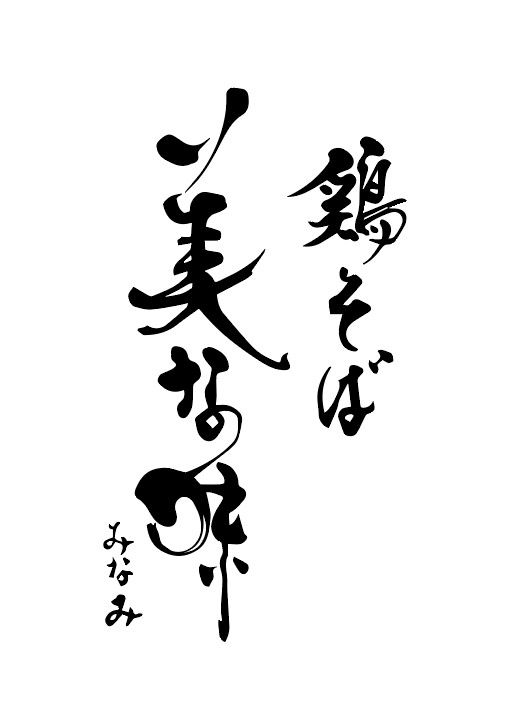 鶏そば
美な味
みなみ